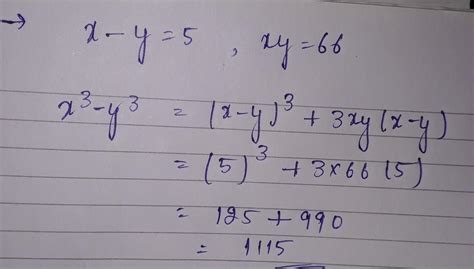 → x - y = 5 , xy = 66
x³-y³ = (x-y)³ + 3xy(x-y)
= (5)³ + 3×66(5)
= 125 + 990
= 1115